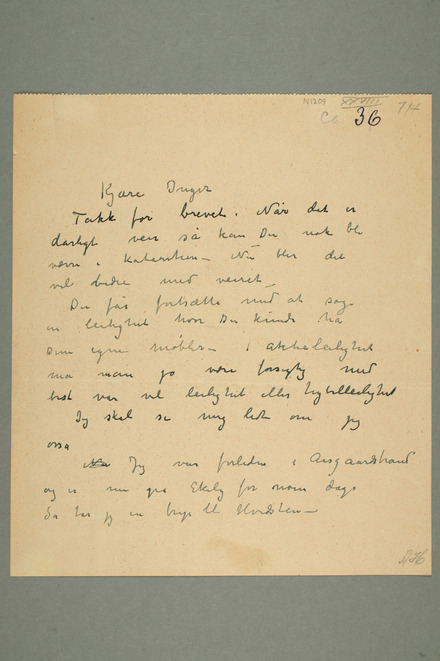 N1209 XXVIII 714
36
Kjære Inger
Takk for brevet. Når det er
dårligt veir så kan Du nok bli
værre i Katarrhen – Nu blir det
vel bedre med veiret –
Du får fortsætte med at søge
en leilighet hvor Du kunde ha
Dine egne møbler – I
må man jo være forsigtig med
best var vel leilighet eller hybelleilighet
Jeg skal se mig lidt om jeg
også
Jeg var forleden i Aasgaardstrand
og er nu på Ekely for nogen dage
Så tar jeg en tur til Hvidsten –